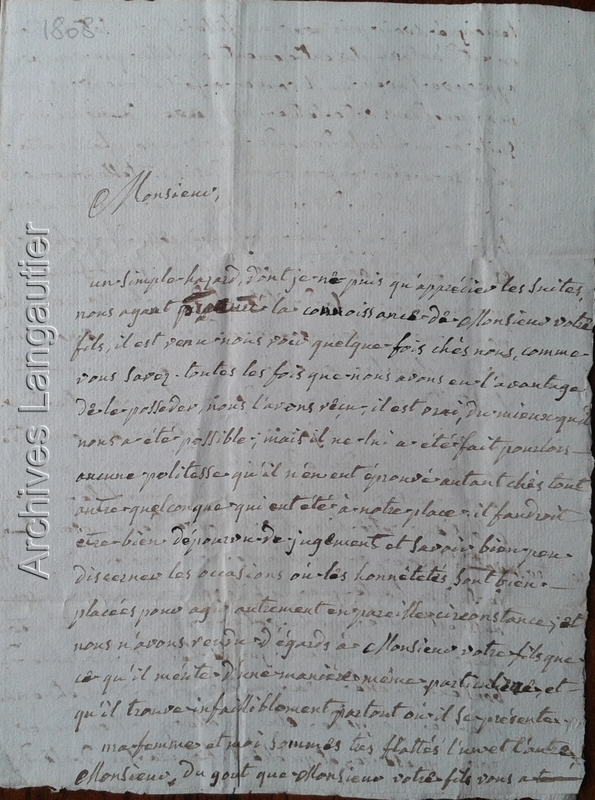 1808
Monsieur,
un simple hazard, dont je ne puis qu'apprécier les suites,
nous ayant procuré la connoissance de Monsieur votre
fils, il est venu nous voir quelque fois chés nous, comme
vous savez. toutes les fois que nous avons eu l'avantage
de le posseder, nous l'avons reçu, il est vrai, du mieux qu'il
nous a été possible; mais il ne lui a été fait pourlors
aucune politesse qu'il n'en eut éprouvé autant chés tout
autre quelconque qui eut été à notre place. il faudroit
être bien dépourvu de jugement et savoir bien peu
discerner les occasions où les honnêtetés sont bien
placées pour agir autrement en pareille circonstance; et
nous n'avons rendu d'égards à Monsieur votre fils que
ce qu'il mérite d'une manière même particulière et
qu'il trouve infailliblement partout où il se présente.
ma femme et moi sommes très flattés l'un et l'autre
Monsieur, du gout que Monsieur votre fils vous a
Archives Langautier